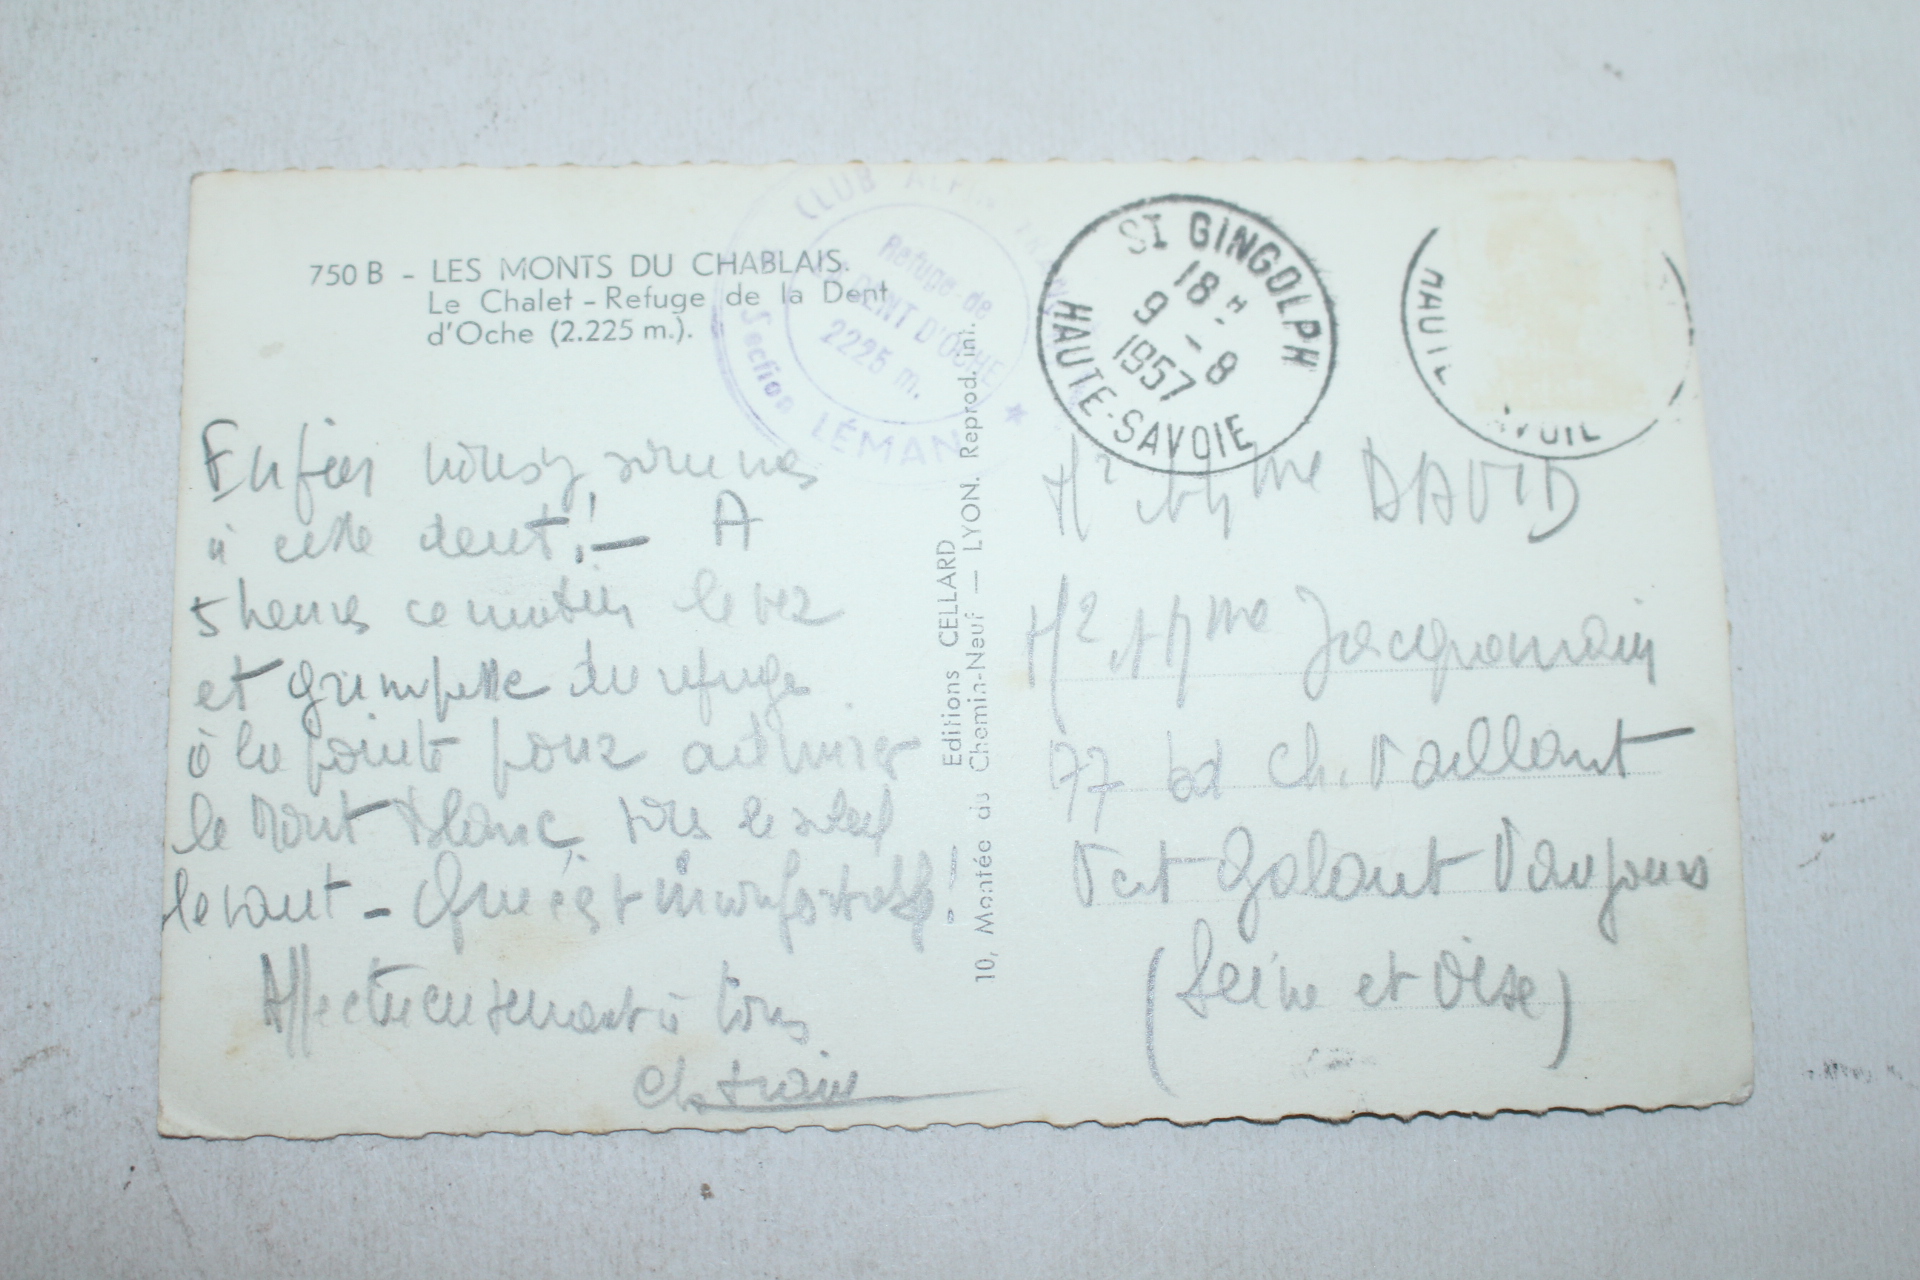 750 B - LES MONTS DU CHABLAIS.
Le Chalet - Refuge de la Dent
d'Oche (2.225 m.).
CLUB ALPIN
Refuge - de
DENT D'OCHE
2225 m.
Section LÉMAN
ST GINGOLPH
18 H
9 - 8
1957
HAUTE-SAVOIE
Enfin nous y sommes
à cette dent ! — A
5 heures ce matin lever
et grimpette du refuge
à la pointe pour admirer
le Mont Blanc sous le soleil
levant - Que c'est inconfortable !
Affectueusement à tous
Editions CELLARD
10, Montée du Chemin-Neuf — LYON. Reprod. int.
Mr et Mme DAVID
Mr et Mme Jacqomain
77 bd Ch. Vaillant
Vert Galant Vaujours
(Seine et Oise)